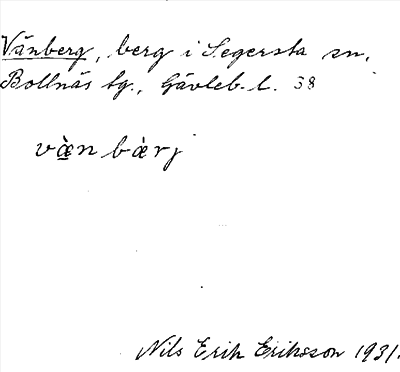 Vänberg, berg i Segersta sn.
Bollnäs tg., Gävleb. l. 38
væ̀n bæ̀rj
Nils Erik Eriksson 1931.